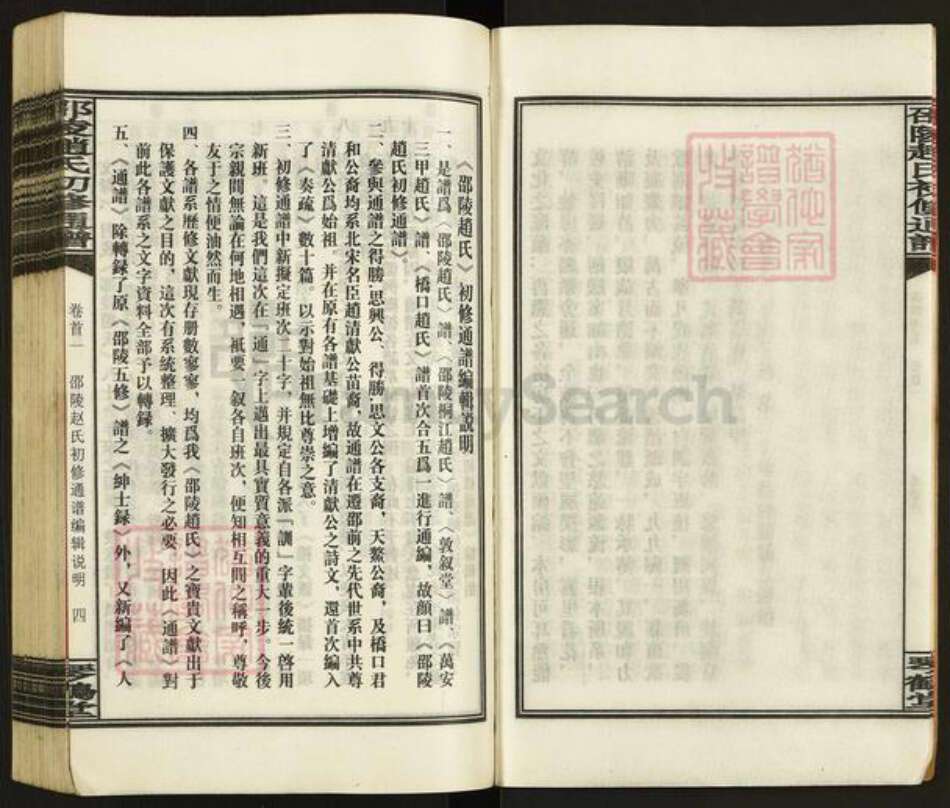 邵陵趙氏初修通譜
琴鶴堂
《邵陵趙氏》初修通譜編輯説明
一、是譜爲《邵陵趙氏》譜、《邵陵桐江趙氏》譜、《敦叙堂》譜、《萬安
三甲趙氏》譜、《橋口趙氏》譜首次合五爲一進行通編，故顔曰《邵陵
趙氏初修通譜》。
二、參與通譜之得勝.思興公、得勝.思文公各支裔，天鰲公裔，及橋口君
和公裔均系北宋名臣趙清獻公苗裔，故通譜在遷邵前之先代世系中共尊
清獻公爲始祖。并在原有各譜基礎上增編了清獻公之詩文，還首次編入
了《奏疏》數十篇。以示對始祖無比尊崇之意。
三、初修通譜中新擬定班次二十字，并規定自各派「訓」字輩後統一啓用
新班。這是我們這次在「通」字上邁出最具實質意義的重大一步。今後
宗親間無論在何地相遇，衹要一叙各自班次，便知相互間之稱呼，尊敬
友于之情便油然而生。
四、各譜系歷修文獻現存册數寥寥，均爲我《邵陵趙氏》之寶貴文獻出于
保護文獻之目的，這次有系統整理、擴大發行之必要，因此《通譜》對
前此各譜系之文字資料全部予以轉録。
五、《通譜》除轉録了原《邵陵五修》譜之《紳士録》外，又新編了《人
邵陵趙氏初修通譜
卷首一
邵陵赵氏初修通谱编辑说明
四
琴鶴堂